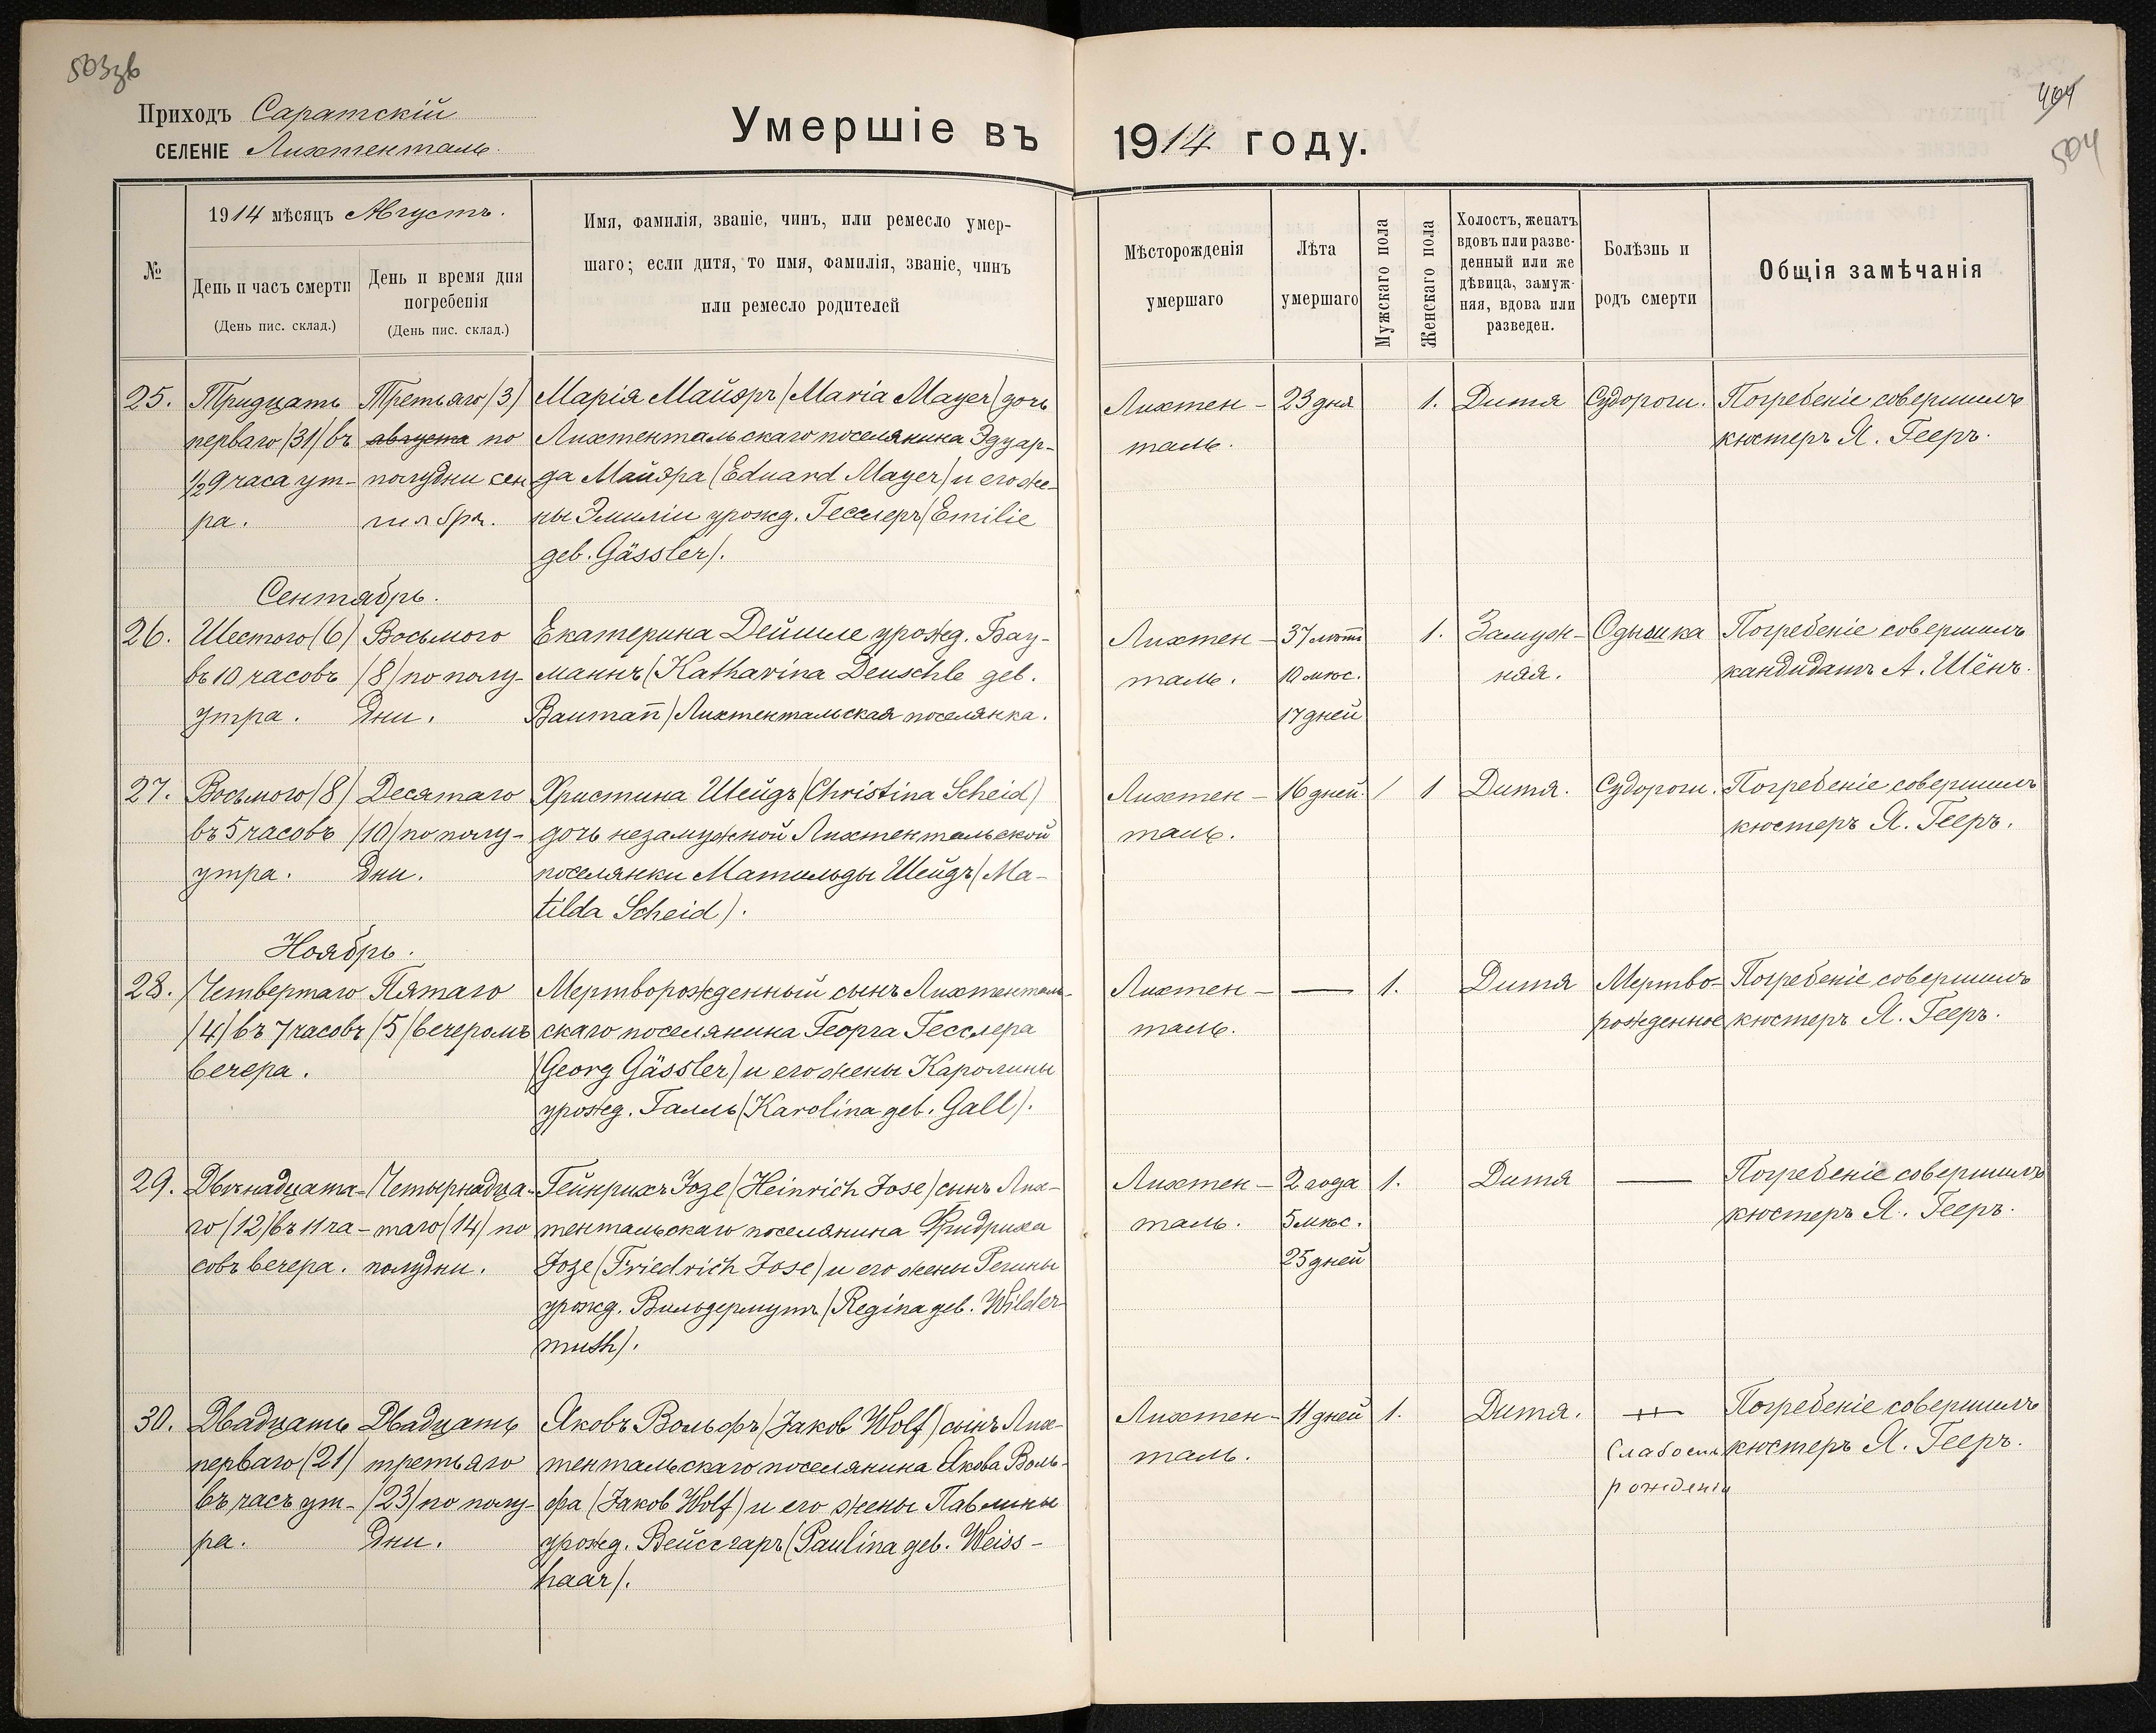 503зв
Приходъ Саратскій
СЕЛЕНІЕ Лихтенталь.
Умершіе въ 1914 году.
404
504
№
1914 мѣсяцъ Августъ.
День и часъ смерти
(День пис. склад.)
День и время дня
погребенія
(День пис. склад.)
Имя, фамилія, званіе, чинъ, или ремесло умер-
шаго; если дитя, то имя, фамилія, званіе, чинъ
или ремесло родителей
Мѣсторожденія
умершаго
Лѣта
умершаго
Мужскаго пола
Женскаго пола
Холостъ, женатъ
вдовъ или разве-
денный или же
дѣвица, замуж-
няя, вдова или
разведен.
Болѣзнь и
родъ смерти
Общія замѣчанія
25.
Тридцать
перваго (31) въ
½9 часа ут-
ра.
Третьяго (3)
августа по
полудни сен
тября.
Марія Майеръ (Maria Mayer) дочь
Лихтентальскаго поселянина Эдуар-
да Майера (Eduard Mayer) и его же-
ны Эмиліи урожд. Гесслеръ (Emilie
geb. Gässler).
Лихтен-
таль.
23 дня
1.
Дитя
Судороги.
Погребеніе совершилъ
кюстеръ Я. Гееръ.
Сентябрь.
26.
Шестого (6)
въ 10 часовъ
утра.
Восьмого
(8) по полу-
дни.
Екатерина Дейшле урожд. Бау-
маннъ (Katharina Deuschle geb.
Bauman̄) Лихтентальская поселянка.
Лихтен-
таль.
37 лѣтъ
10 мѣс.
17 дней
1.
Замуж-
няя.
Одышка
Погребеніе совершилъ
кандидатъ А. Шёнъ.
27.
Восьмого (8)
въ 5 часовъ
утра.
Десятаго
(10) по полу-
дни.
Христина Шейдъ (Christina Scheid)
дочь незамужной Лихтентальской
поселянки Матильды Шейдъ (Ma-
tilda Scheid).
Лихтен-
таль.
16 дней.
/
1
Дитя.
Судороги.
Погребеніе совершилъ
кюстеръ Я. Гееръ.
Ноябрь.
28.
Четвертаго
(4) въ 7 часовъ
вечера.
Пятаго
(5) вечеромъ
Мертворожденный сынъ Лихтенталь-
скаго поселянина Георга Гесслера
(Georg Gässler) и его жены Каролины
урожд. Галль (Karolina geb. Gall).
Лихтен-
таль.
—
1.
Дитя
Мертво-
рожденное
Погребеніе совершилъ
кюстеръ Я. Гееръ.
29.
Двѣнадцата-
го (12) въ 11 ча-
совъ вечера.
Четырнадца-
таго (14) по
полудни.
Гейнрихъ Іозе (Heinrich Jose) сынъ Лих-
тентальскаго поселянина Фридриха
Іозе (Friedrich Jose) и его жены Регины
урожд. Вильдермутъ (Regina geb. Wilder-
muth).
Лихтен-
таль.
2 года
5 мѣс.
25 дней
1.
Дитя
—
Погребеніе совершилъ
кюстеръ Я. Гееръ.
30.
Двадцать
перваго (21)
въ часъ ут-
ра.
Двадцать
третьяго
(23) по полу-
дни.
Яковъ Вольфъ (Jakob Wolf) сынъ Лих-
тентальскаго поселянина Якова Воль-
фа (Jakob Wolf) и его жены Павлины
урожд. Вейссгаръ (Paulina geb. Weiss-
haar).
Лихтен-
таль.
11 дней
1.
Дитя.
—
Слабость
рожденія
Погребеніе совершилъ
кюстеръ Я. Гееръ.